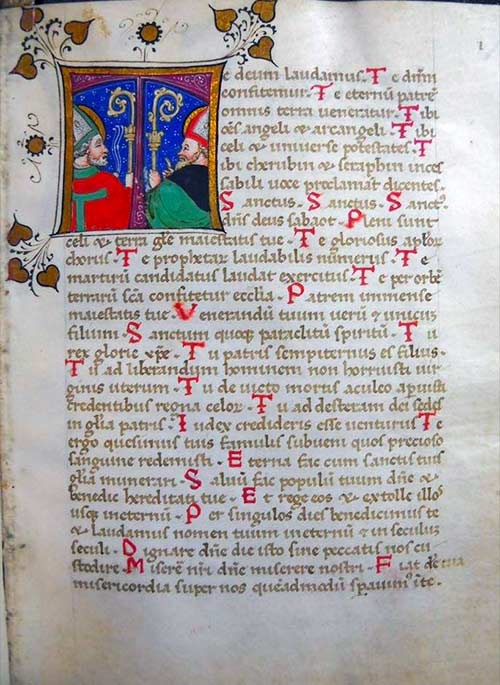 Te deum laudamus. Te dnm̄
confitemur. Te eternū patrē
omnis terra veneratur. Tibi
oēs angeli & arcangeli. Tibi
celi & universe potestates. T
ibi cherubin & seraphin inces
sabili voce proclamāt dicentes.
Sanctus. Sanctus. Sanctꝰ
dn̄s deus sabaot. Pleni sunt
celi & terra glē maiestatis tue. Te gloriosus aplōꝝ
chorus. Te prophetaꝝ laudabilis numerus. Te
martirū candidatus laudat exercitus. Te per orbē
terrarū scā confitetur ecclīa. Patrem immense
maiestatis tue. Venerandū tuum verū & unicuꝫ
filium. Sanctum quoqꝫ paraclitū spiritū. Tu
rex glorie xp̄e. Tu patris sempiternus es filius.
Tu ad liberandum hominem non horruisti vir
ginis uterum. Tu devicto mortis aculeo apuisti
credentibus regna celoꝝ. Tu ad desteram dei sedes
in glīa patris. Iudex crederis esse venturus. Te
ergo quesumus tuis famulis subveni quos precioso
sanguine redemisti. Eterna fac cum sanctis tuis
glīa munerari. Salvū fac populū tuum dn̄e &
benedic hereditati tue. Et rege eos & extolle illos
usqꝫ ineternū. Per singulos dies benedicimus te
& laudamus nomen tuum ineternū & in seculuꝫ
seculi. Dignare dn̄e die isto sine peccatis nos cu
stodire. Miserē nr̄i dn̄e miserere nostri. Fiat dn̄e
misericordia super nos quēadmodū speravimꝰ ī te.